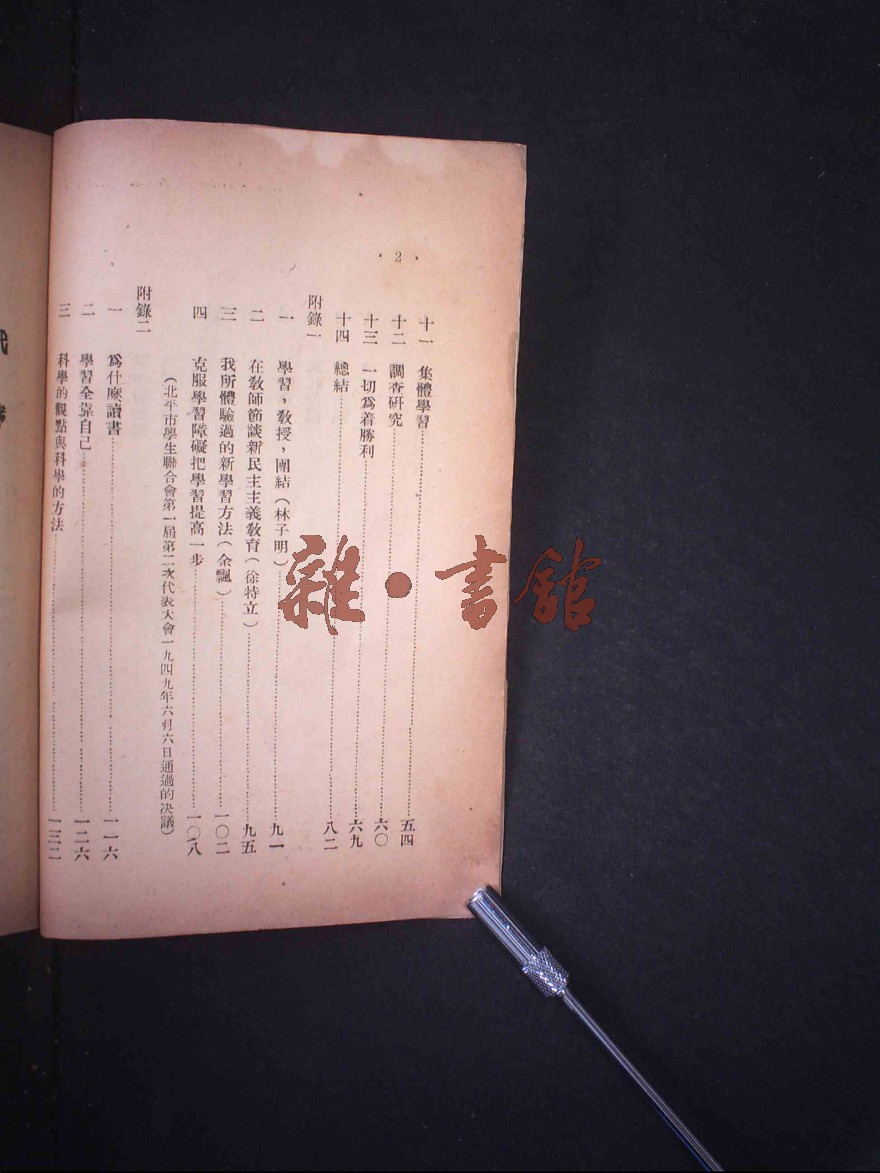 · 2 ·
十一 集體學習……五四
十二 調查研究……六〇
十三 一切爲着勝利……六九
十四 總結……八二
附錄一
一 學習，敎授，團結（林子明）……九一
二 在敎師節談新民主主義敎育（徐特立）……九五
三 我所體驗過的新學習方法（余飄）……一〇二
四 克服學習障礙把學習提高一步……一〇八
（北平市學生聯合會第一屆第二次代表大會一九四九年六月六日通過的決議）
附錄二
一 爲什麽讀書……一一六
二 學習全靠自己……一二六
三 科學的觀點與科學的方法……一三二
雜·書館